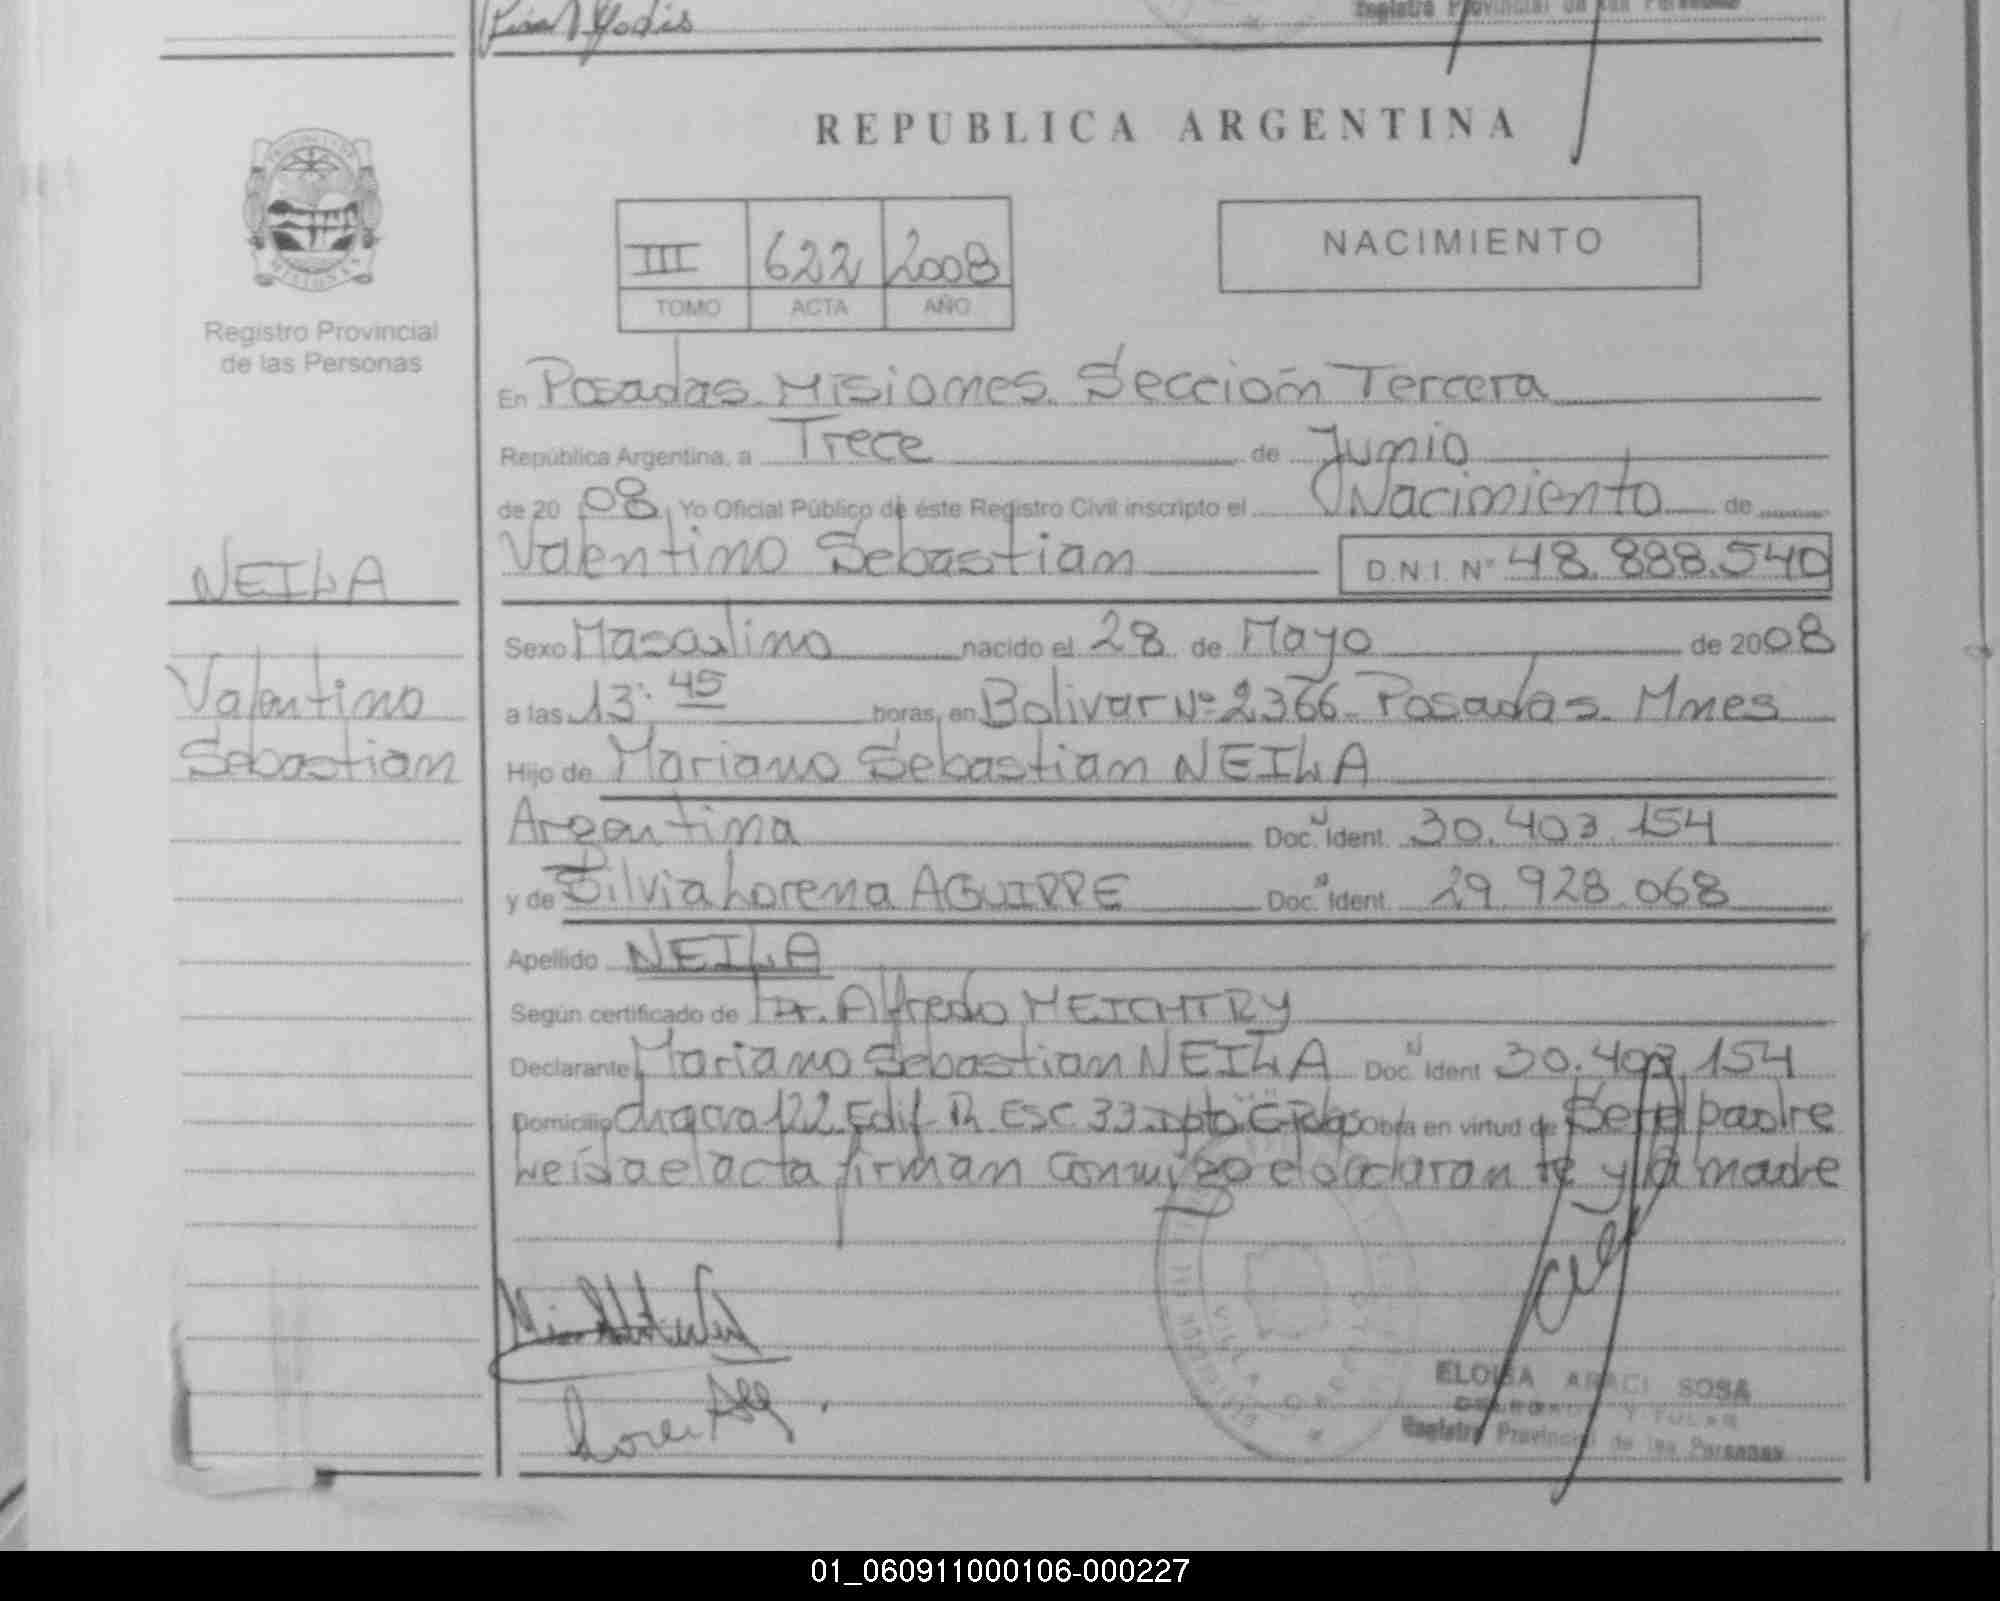 Registro Provincial de las Personas
REPUBLICA ARGENTINA
III 622 2008
TOMO ACTA AÑO
NACIMIENTO
Registro Provincial
de las Personas
NEILA
Valentino
Sebastian
En Posadas Misiones. Sección Tercera
República Argentina, a Trece de Junio
de 20 08 Yo Oficial Público de éste Registro Civil inscripto el Nacimiento de
Valentino Sebastian D.N.I. Nº 48.888.540
Sexo Masculino nacido el 28 de Mayo de 2008
a las 13:45 horas, en Bolivar Nº 2366 Posadas. Mnes
Hijo de Mariano Sebastian NEILA
Argentina Doc. Ident. 30.403.154
y de Silvia Lorena AGUIRRE Doc. Ident. 29.928.068
Apellido NEILA
Según certificado de Dr. Alfredo MEICHTRY
Declarante Mariano Sebastian NEILA Doc. Ident 30.403.154
Domicilio chacra 122 Edif. Esc 33 Dpto C Obra en virtud de Ser el padre
Leída el acta firman conmigo el declarante y la madre
ELOISA ARACI SOSA
Registro Provincial de las Personas
01_060911000106-000227